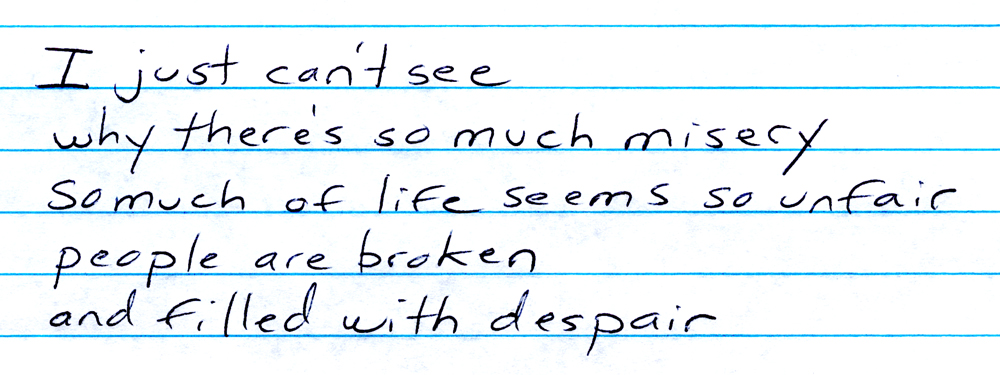 I just can't see
why there's so much misery
So much of life seems so unfair
people are broken
and filled with despair